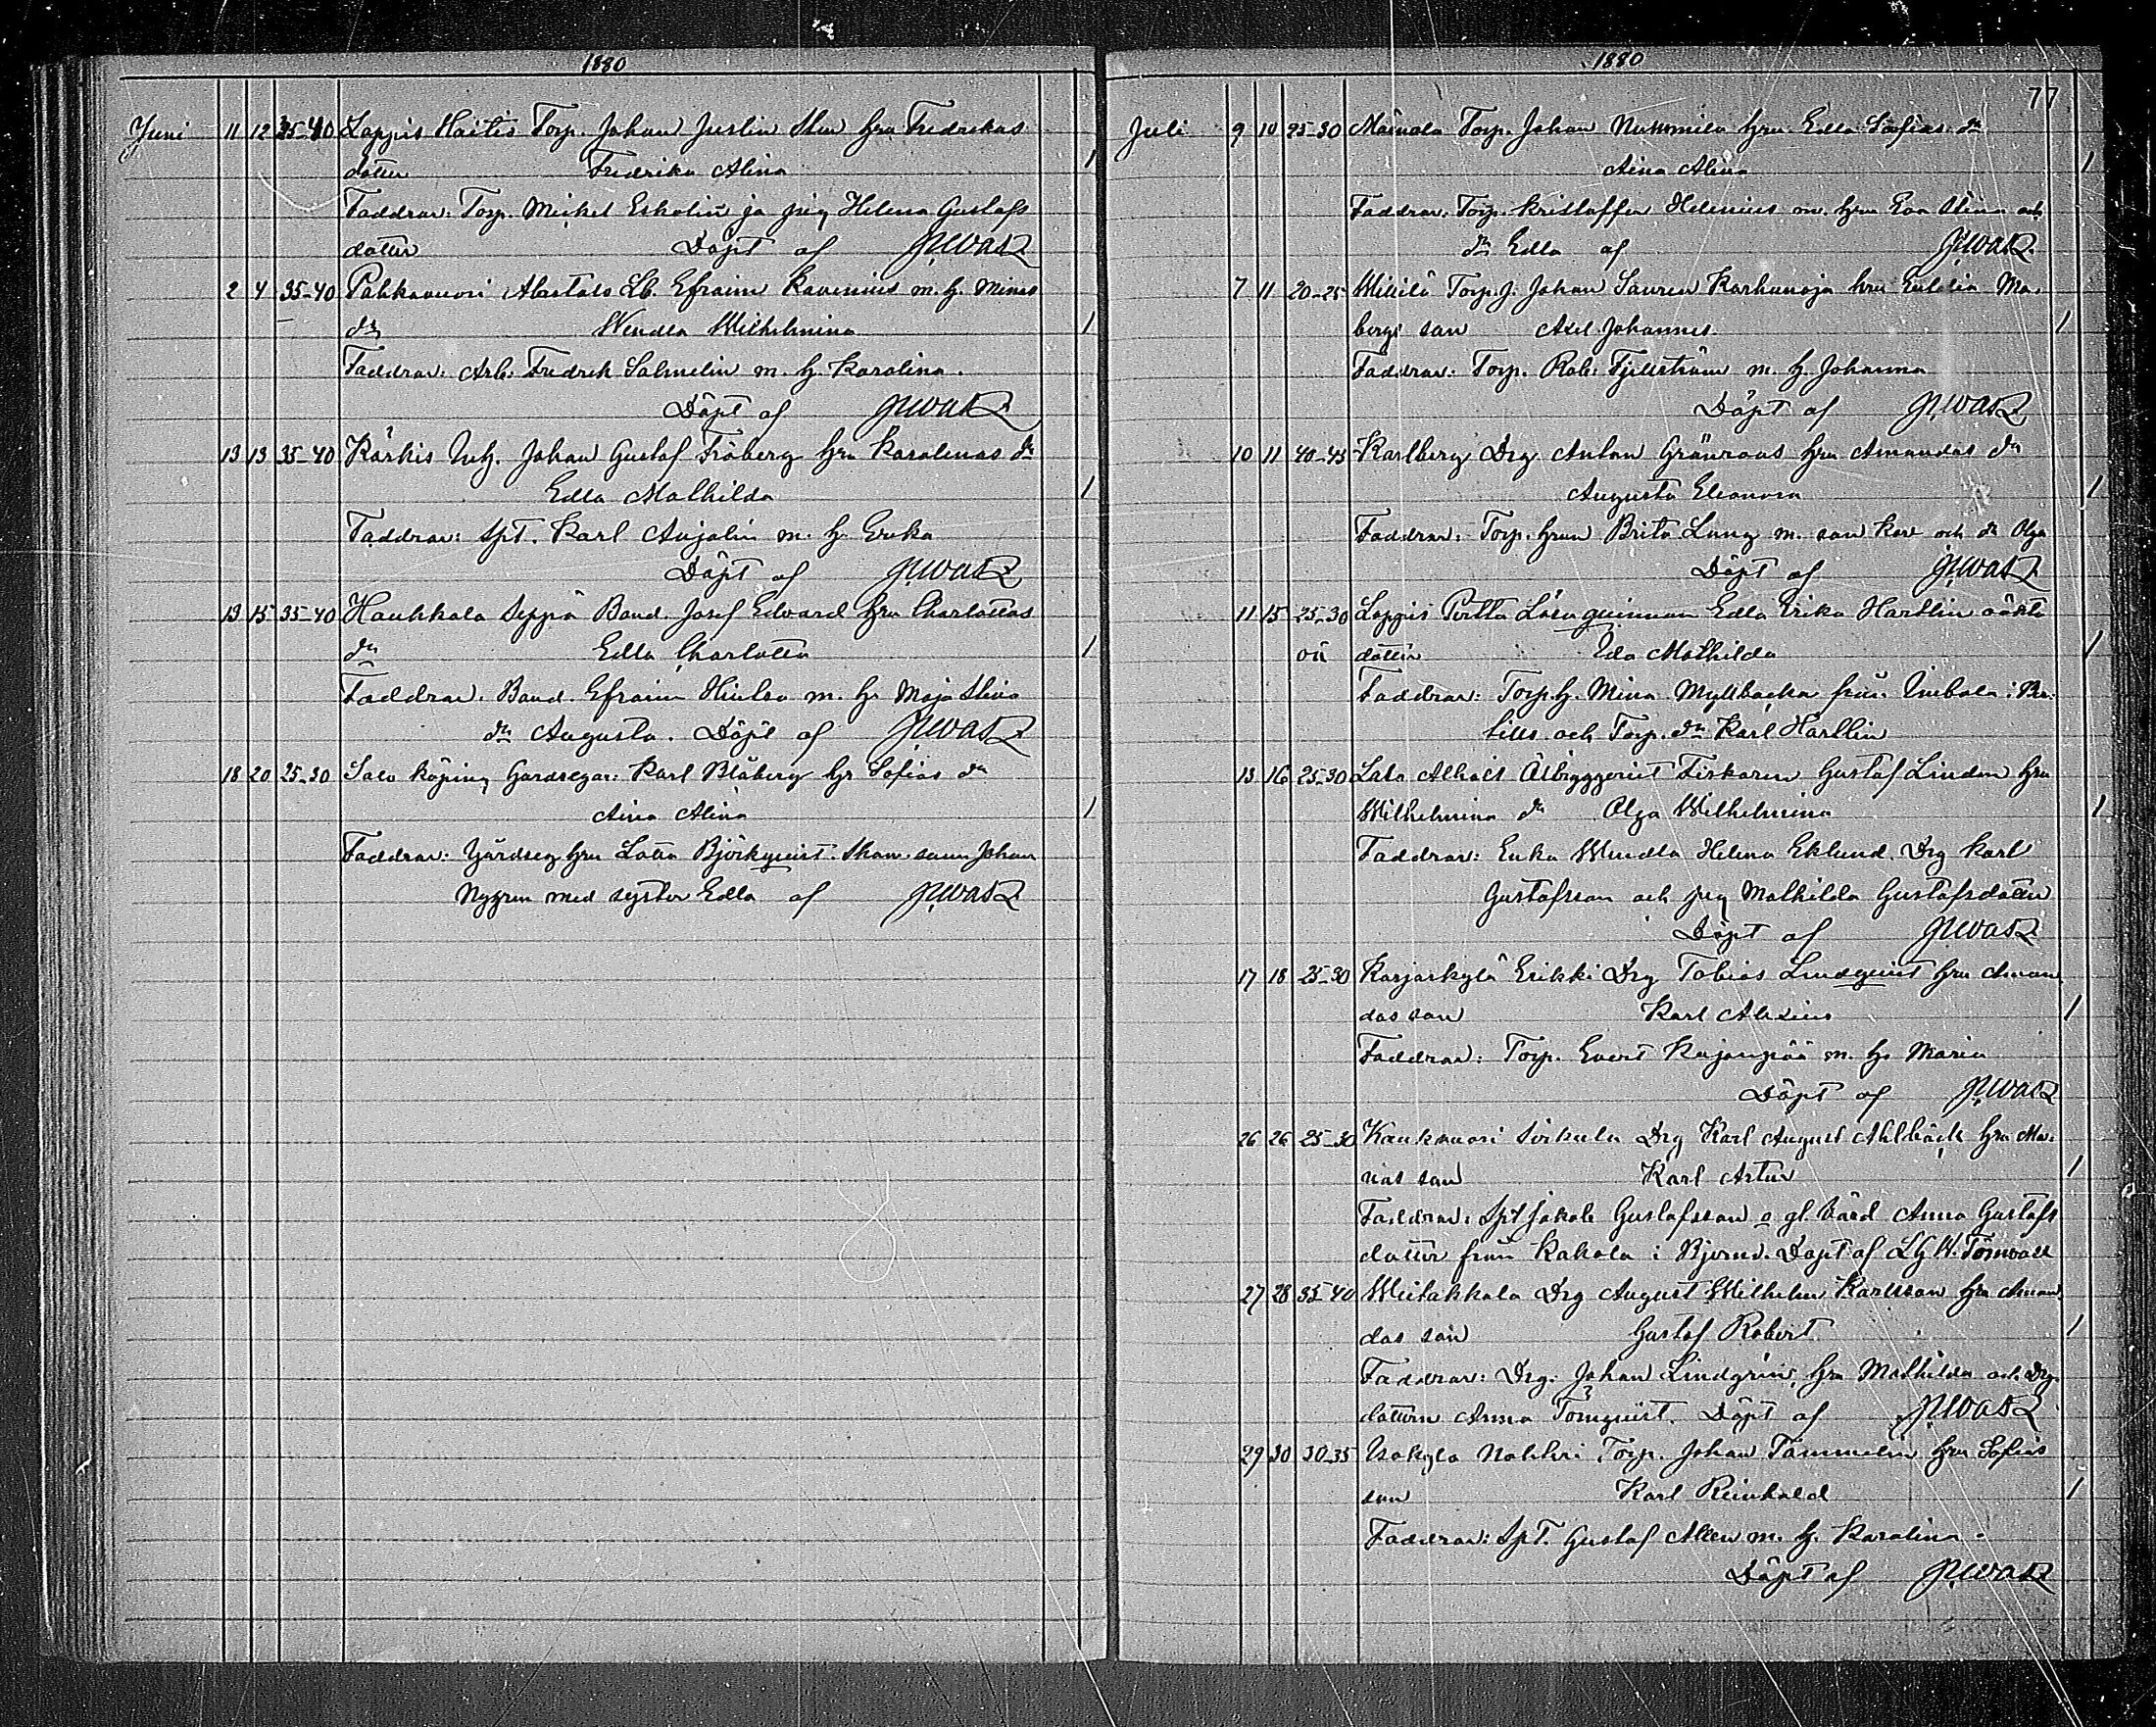 1880
Juni 11 12 35-40 Loppis Haitis Torp. Johan Justin Sten hru Fredrikas
dotter Fredrika Alina 1
Faddrar: Torp. Mickel Eskolin ja pig Helena Gustafs
dotter Döpt af
2 4 35-40 Pahkavuori Alastalo Lb. Efraim Ravenius m. h. Minas
dr Wendla Wilhelmina 1
Faddrar: Arb. Fredrik Salmelin m. h. Karolina.
Döpt af
13 13 35-40 Kärkis Inh. Johan Gustaf Fröberg hru Karolinas dr
Edla Mathilda 1
Faddrar: Spt. Karl Anjalin m. h. Erika
Döpt af
13 15 35-40 Haukkala Seppä Bond. Josef Edvard hru Charlottas
dr Edla Charlotta 1
Faddrar. Bond. Efraim Hinlea m. h. Maja Stina
dr Augusta. Döpt af
18 20 25-30 Salo köping Gårdsegar: Karl Blåberg hr Sofias dr
Aina Alina 1
Faddrar: Gårdseg. hru Lotta Björkqvist. Skom. sonen Johan
Nygren med syster Edla af
1880
77
Juli 9 10 25-30 Mainola Torp. Johan Nummila hru Edla Sofias dr
Aina Alina 1
Faddrar: Torp. Kristoffer Helenius m. hru Eva Stina och
dr Edla af
7 11 20-25 Torp. j. Johan Sauren Karhunoja hru Eulalia Ma.
bergs son Axel Johannes. 1
Faddrar: Torp. Rob. Fjellström m. h. Johanna
Döpt af
10 11 40-45 Karlberg Drg Anton Grönroos hru Amandas dr
Augusta Eleonora 1
Faddrar: Torp. hrun Brita Lung m. son Karl och dr Olga
Döpt af
11 15 25-30 Loppis Potta Lösa qvinnan Edla Erika Harllin oäkta
oä dotter Ida Mathilda 1
Faddrar: Torp h. Mina Myllbacka från i
och Torp. dr Karl Harllin
13 16 25-30 Lalo Alhais Albyggqvist Fiskaren Gustaf Linden hru
Wilhelmina dr Olga Wilhelmina 1
Faddrar: Enka Wendla Helena Eklund. Drg Karl
Gustafsson och pig Mathilda Gustafsdotter
Döpt af
17 18 25-30 Karjaskylä Erikki Drg Tobias Lindqvist hru Aman
das son Karl Aleksius 1
Faddrar: Torp. Evert Kujanpää m. h. Maria
Döpt af
26 26 25-30 Kaukvuori Sirkula Drg Karl August Ahlbäck hru Ma.
rias son Karl Artur 1
Faddrar: Spt Jakob Gustafsson o gl. Värd Anna Gustafs
dotter från Kakola i Bjerno. Döpt af L G W. Törnvall
27 28 35-40 Drg August Wilhelm Karlsson hru Aman.
das son Gustaf Robert 1
Faddrar: Drg. Johan Lindgrén, hru Mathilda och Drg.
dottern Anna Tömqvist. Döpt af
29 30 30-35 Isokylä Nahkri Torp. Johan Tammelin hru Sofias
son Karl Reinhold 1
Faddrar: Spt. Gustaf Allen m. h. Karolina.
Döpt af